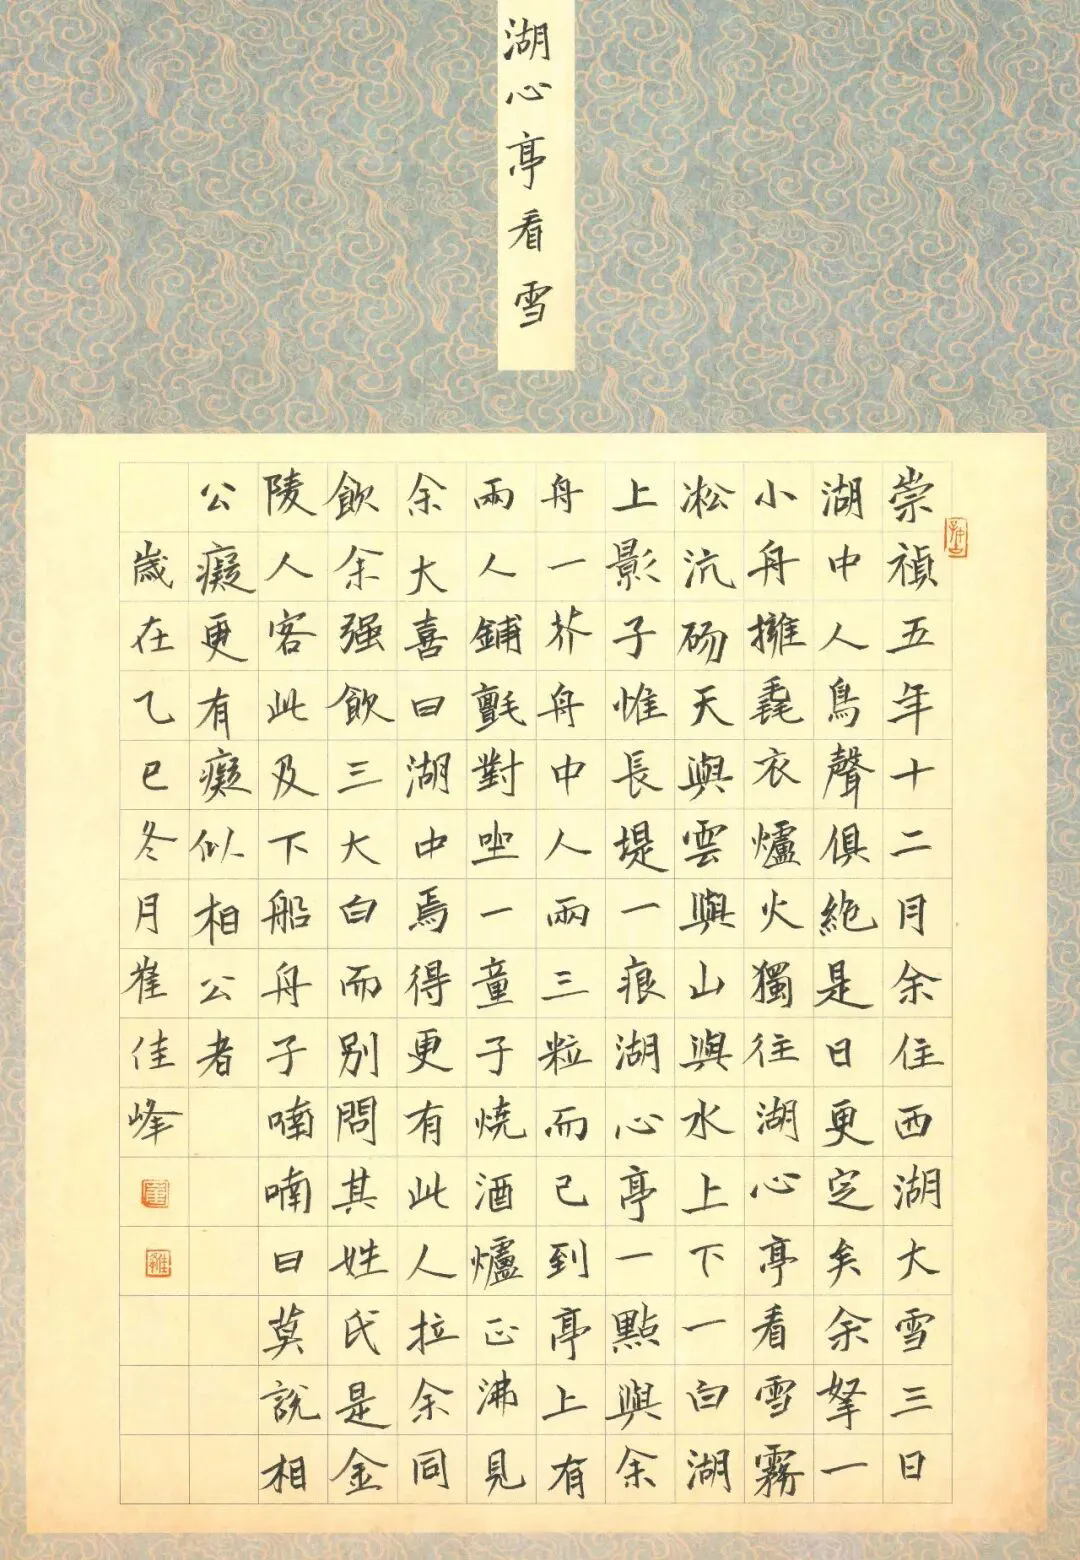 湖心亭看雪
崇禎五年十二月余住西湖大雪三日
湖中人鳥聲俱絶是日更定矣余拏一
小舟擁毳衣爐火獨往湖心亭看雪霧
凇沆砀天與雲與山與水上下一白湖
上影子惟長堤一痕湖心亭一點與余
舟一芥舟中人兩三粒而已到亭上有
兩人鋪氈對坐一童子燒酒爐正沸見
余大喜曰湖中焉得更有此人拉余同
飲余强飲三大白而別問其姓氏是金
陵人客此及下船舟子喃喃曰莫說相
公癡更有癡似相公者
歲在乙巳冬月崔佳峰